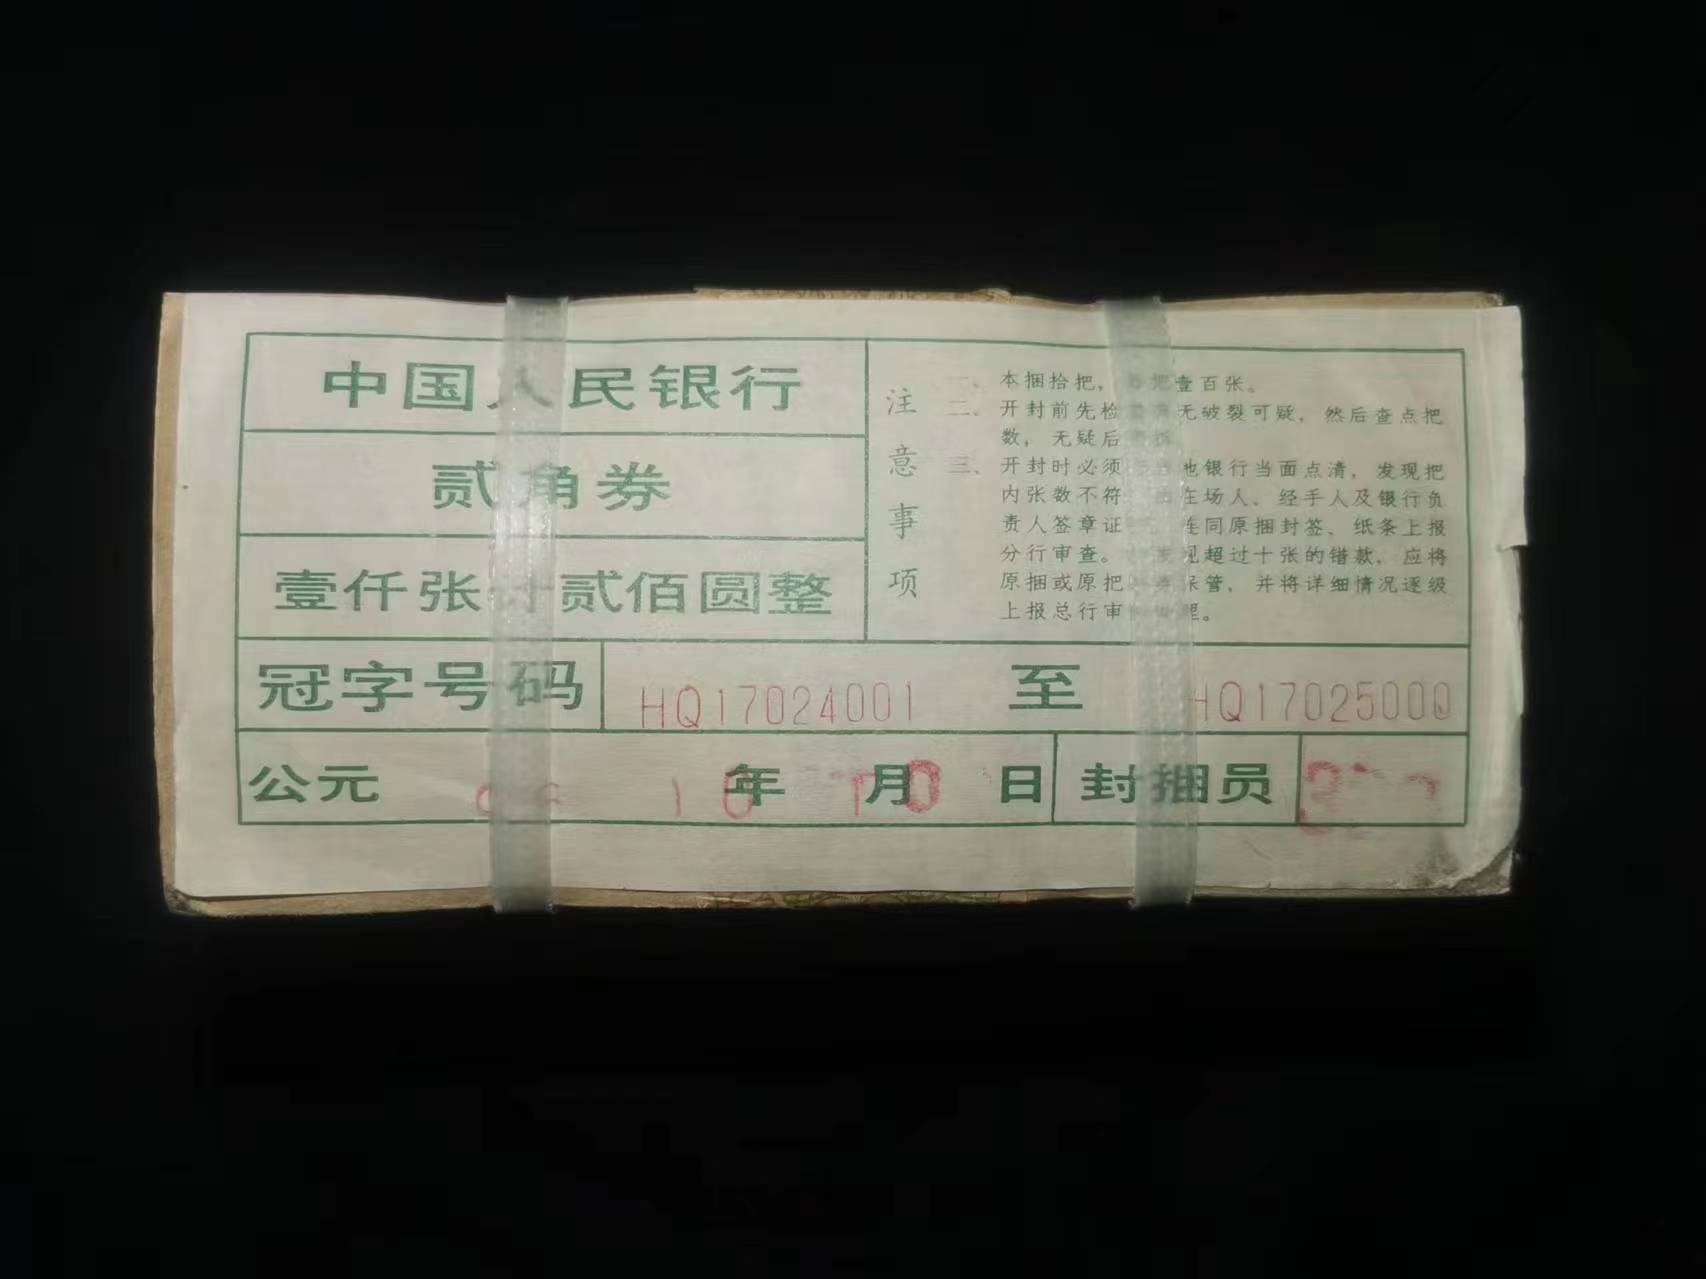 中国人民银行
贰角券
壹仟张计贰佰圆整
注意事项
一、本捆拾把，每把壹百张。
二、开封前先检 无破裂可疑，然后查点把
数，无疑后
三、开封时必须 地银行当面点清，发现把
内张数不符 在场人、经手人及银行负
责人签章证 连同原捆封签、纸条上报
分行审查。 发现超过十张的错款，应将
原捆或原把 保管，并将详细情况逐级
上报总行审 理。
冠字号码 HQ17024001 至 HQ17025000
公元 年 月 日 封捆员